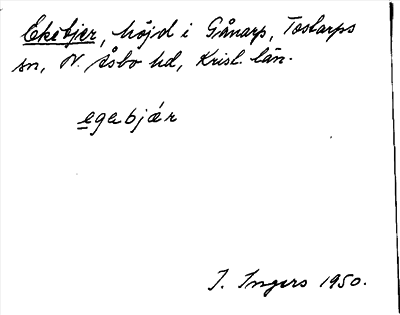 Ekebjer, höjd i Gånarp, Tostarps
sn, N. Åsbo hd, Krist. län.
egabjär
I. Ingers 1950.